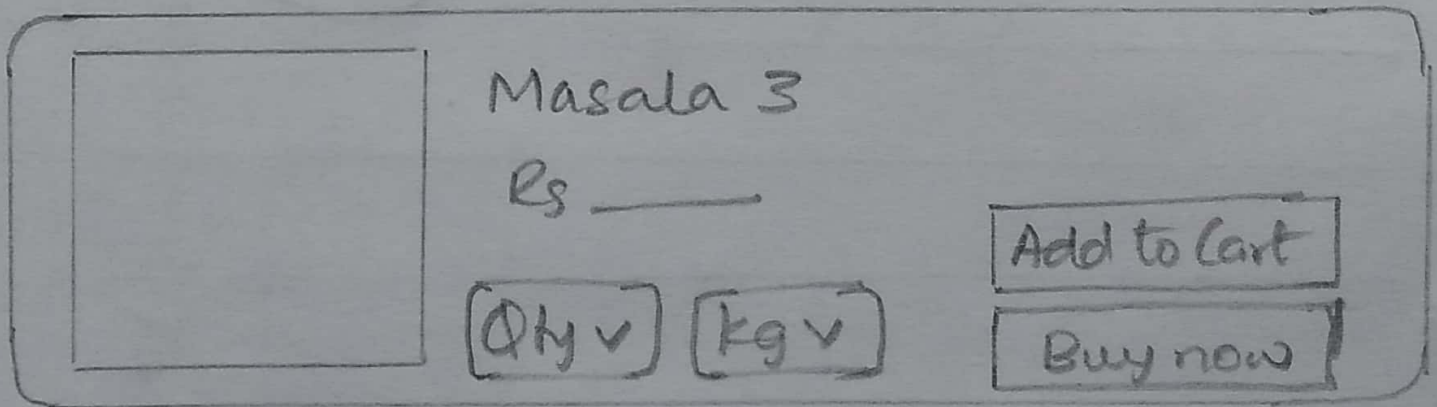 Masala 3
Rs ____
Qty v kg v
Add to Cart
Buy now